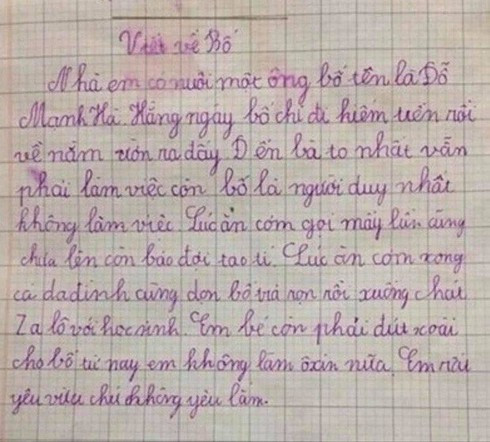 Viết về Bố
Nhà em có nuôi một ông bố tên là Đỗ
Mạnh Hà. Hằng ngày bố chỉ đi kiếm tiền rồi
về nằm ườn ra đấy. Đến bà to nhất vẫn
phải làm việc còn bố là người duy nhất
không làm việc. Lúc ăn cơm gọi mấy lần cũng
chưa lên còn bảo đợi tao tí. Lúc ăn cơm xong
cả dađình cùng dọn bố trả nọn rồi xuống chát
Zalô với học sinh. Em bé còn phải đút xoài
cho bố từ nay em không làm ôxin nữa. Em rất
yêu vừa chứ không yêu lắm.